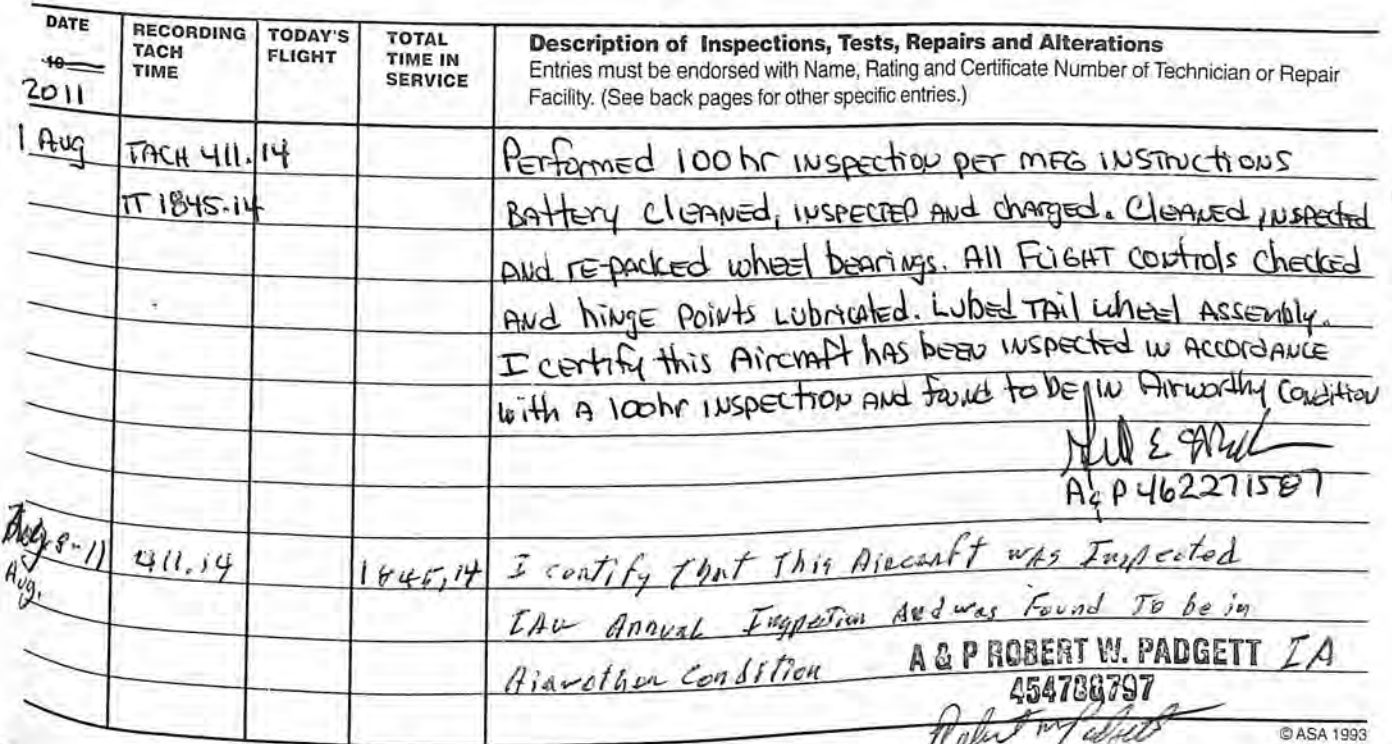 DATE
RECORDING TACH TIME
TODAY'S FLIGHT
TOTAL TIME IN SERVICE
Description of Inspections, Tests, Repairs and Alterations
Entries must be endorsed with Name, Rating and Certificate Number of Technician or Repair
Facility. (See back pages for other specific entries.)
19
2011
1 Aug TACH 411.14 Performed 100 hr inspection per MFG instructions
TT 1845.14 Battery cleaned, inspected and charged. Cleaned, inspected
and re-packed wheel bearings. All Flight controls checked
and hinge points lubricated. Lubed tail wheel assembly.
I certify this Aircraft has been inspected in accordance
with a 100hr inspection and found to be in Airworthy condition
A&P 462271587
8-11 411.14 1845.14 I certify that this Aircraft was Inspected
Aug.
IAW Annual Inspection And was Found To be in
Condition A & P ROBERT W. PADGETT IA
454788797
© ASA 1993